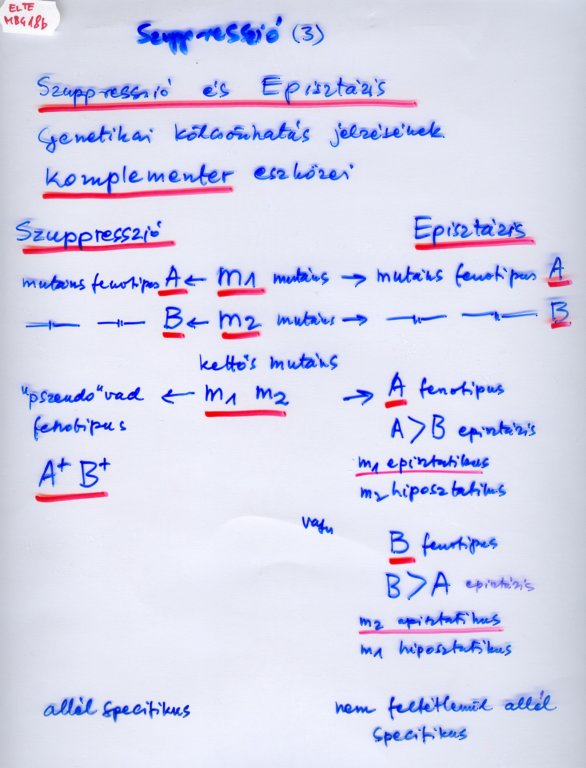 ELTE
MBG18b
Szuppresszió (3)
Szuppresszió és Episztázis
Genetikai kölcsönhatás jelzésének
komplementer eszközei
Szuppresszió Episztázis
mutáns fenotípus A ← m1 mutáns → mutáns fenotípus A
—〃— —〃— B ← m2 mutáns → —〃— —〃— B
kettős mutáns
"pszeudo"vad ← m1 m2 → A fenotípus
fenotípus
A > B episztázis
A+ B+
m1 episztatikus
m2 hiposztatikus
vagy
B fenotípus
B > A episztázis
m2 episztatikus
m1 hiposztatikus
allél specifikus
nem feltétlenül allél
specifikus